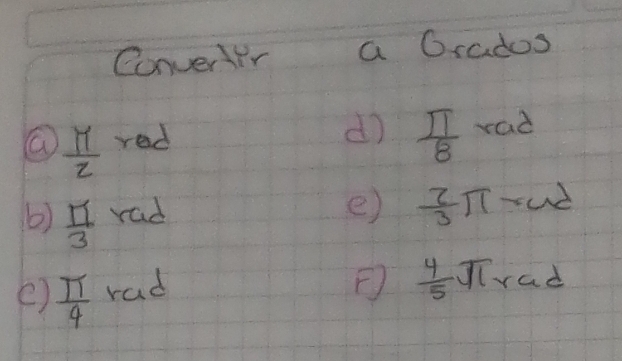 Convertir a Grados
a) π/2 rad
b) π/3 rad
c) π/4 rad
d) π/8 rad
e) 2/3 π rad
F) 4/5 π rad